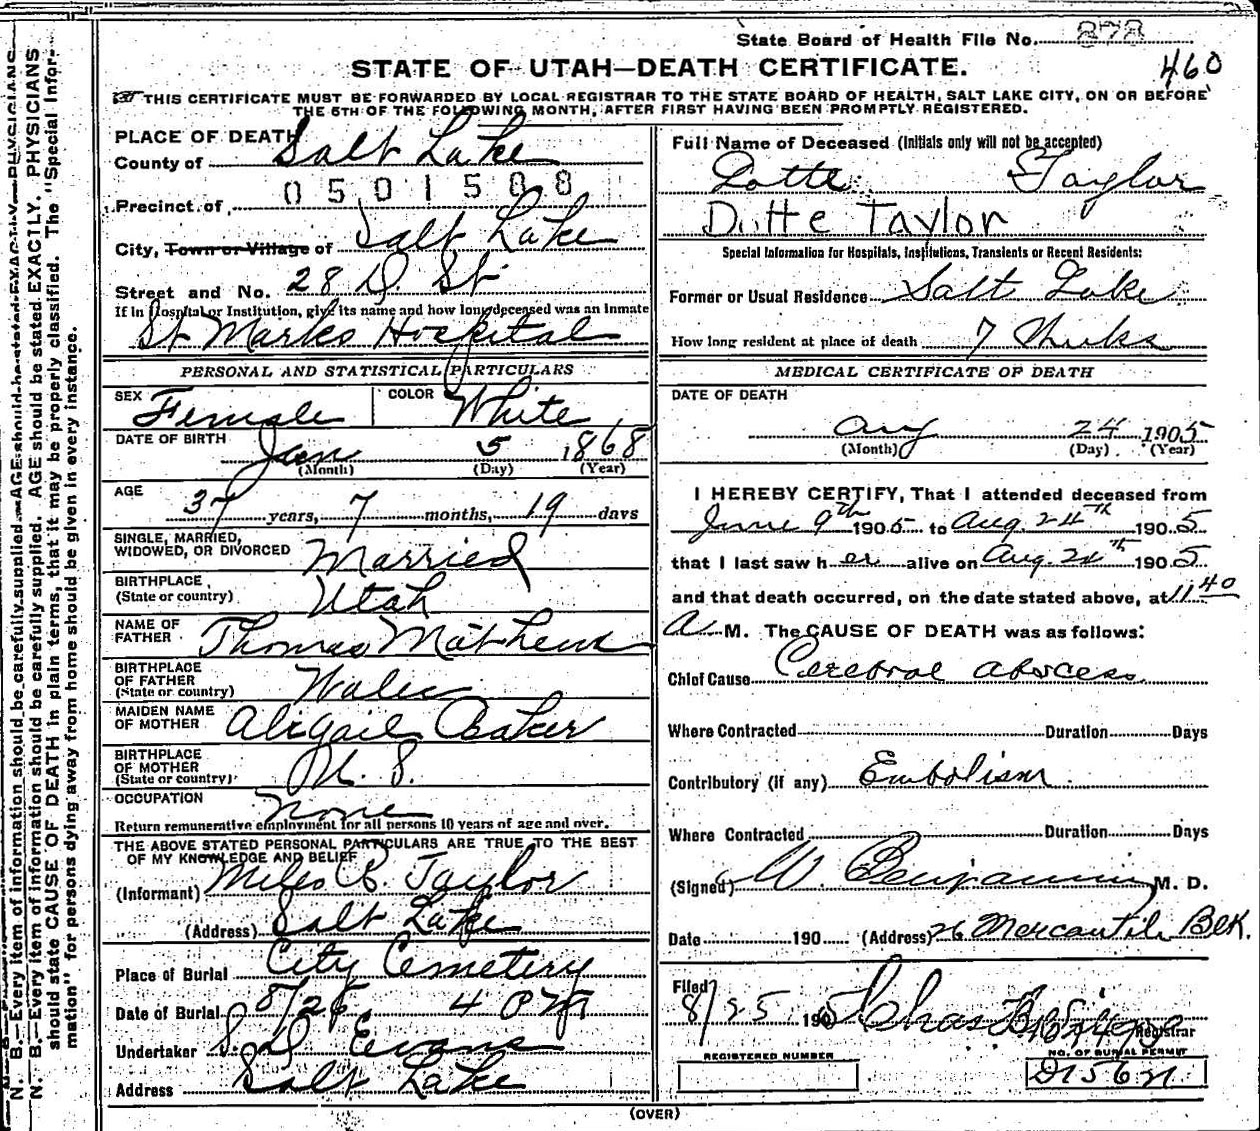 State Board of Health File No. 878
460
STATE OF UTAH—DEATH CERTIFICATE.
THIS CERTIFICATE MUST BE FORWARDED BY LOCAL REGISTRAR TO THE STATE BOARD OF HEALTH, SALT LAKE CITY, ON OR BEFORE
THE 5TH OF THE FOLLOWING MONTH, AFTER FIRST HAVING BEEN PROMPTLY REGISTERED.
PLACE OF DEATH
County of Salt Lake
0501588
Precinct of
City, Town or Village of Salt Lake
Street and No. 28 D. St
If in Hospital or Institution, give its name and how long deceased was an inmate
St Marks Hospital
PERSONAL AND STATISTICAL PARTICULARS
SEX Female COLOR White
DATE OF BIRTH
Jan 5 1868
(Month) (Day) (Year)
AGE
37 years, 7 months, 19 days
SINGLE, MARRIED,
WIDOWED, OR DIVORCED Married
BIRTHPLACE
(State or country) Utah
NAME OF
FATHER Thomas Mathews
BIRTHPLACE
OF FATHER
(State or country) Wales
MAIDEN NAME
OF MOTHER Abigail Baker
BIRTHPLACE
OF MOTHER
(State or country) U. S.
OCCUPATION None
Return remunerative employment for all persons 10 years of age and over.
THE ABOVE STATED PERSONAL PARTICULARS ARE TRUE TO THE BEST
OF MY KNOWLEDGE AND BELIEF
(Informant) Miles R. Taylor
(Address) Salt Lake
Place of Burial City Cemetery
Date of Burial 8/26 4 PM
Undertaker S. D. Evans
Address Salt Lake
Full Name of Deceased (Initials only will not be accepted)
Dotte Taylor
Dotte Taylor
Special Information for Hospitals, Institutions, Transients or Recent Residents:
Former or Usual Residence Salt Lake
How long resident at place of death 7 Weeks
MEDICAL CERTIFICATE OF DEATH
DATE OF DEATH
Aug 24 1905
(Month) (Day) (Year)
I HEREBY CERTIFY, That I attended deceased from
June 9th 1905 to Aug. 24th 1905
that I last saw her alive on Aug. 24th 1905
and that death occurred, on the date stated above, at 11 40
A M. The CAUSE OF DEATH was as follows:
Chief Cause Cerebral abscess
Where Contracted Duration Days
Contributory (if any) Embolism
Where Contracted Duration Days
(Signed) W. Benjamin M. D.
Date 190 (Address) 26 Mercantile Blk.
Filed
8/25 1905 Chas Registrar
REGISTERED NUMBER
NO. OF BURIAL PERMIT
(OVER)
N. B.—Every item of information should be carefully supplied. AGE should be stated EXACTLY. PHYSICIANS
N. B.—Every item of information should be carefully supplied. AGE should be stated EXACTLY. PHYSICIANS
should state CAUSE OF DEATH in plain terms, that it may be properly classified. The "Special Infor-
mation" for persons dying away from home should be given in every instance.